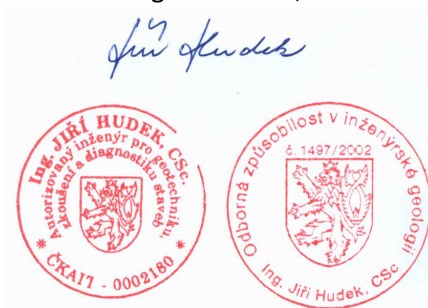 Jiří Hudek
Ing. JIŘÍ HUDEK, CSc.
Autorizovaný inženýr pro geotechniku,
zkoušení a diagnostiku staveb
* ČKAIT - 0002180 *
Odborná způsobilost v inženýrské geologii
č. 1497/2002
Ing. Jiří Hudek, CSc